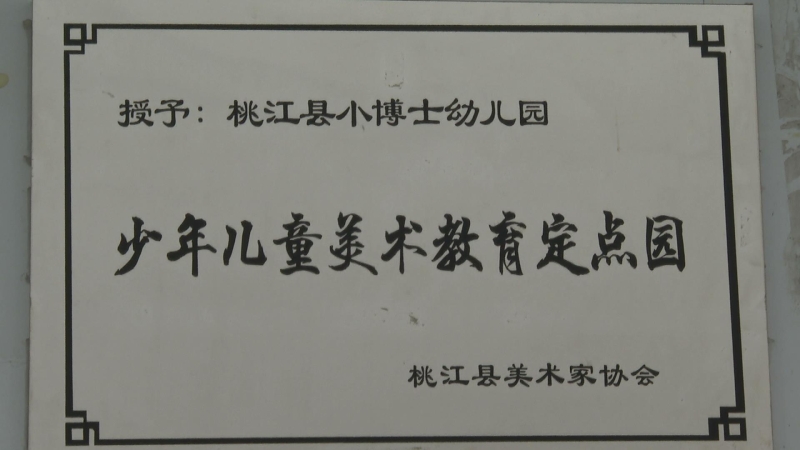 授予：桃江县小博士幼儿园
少年儿童美术教育定点园
桃江县美术家协会